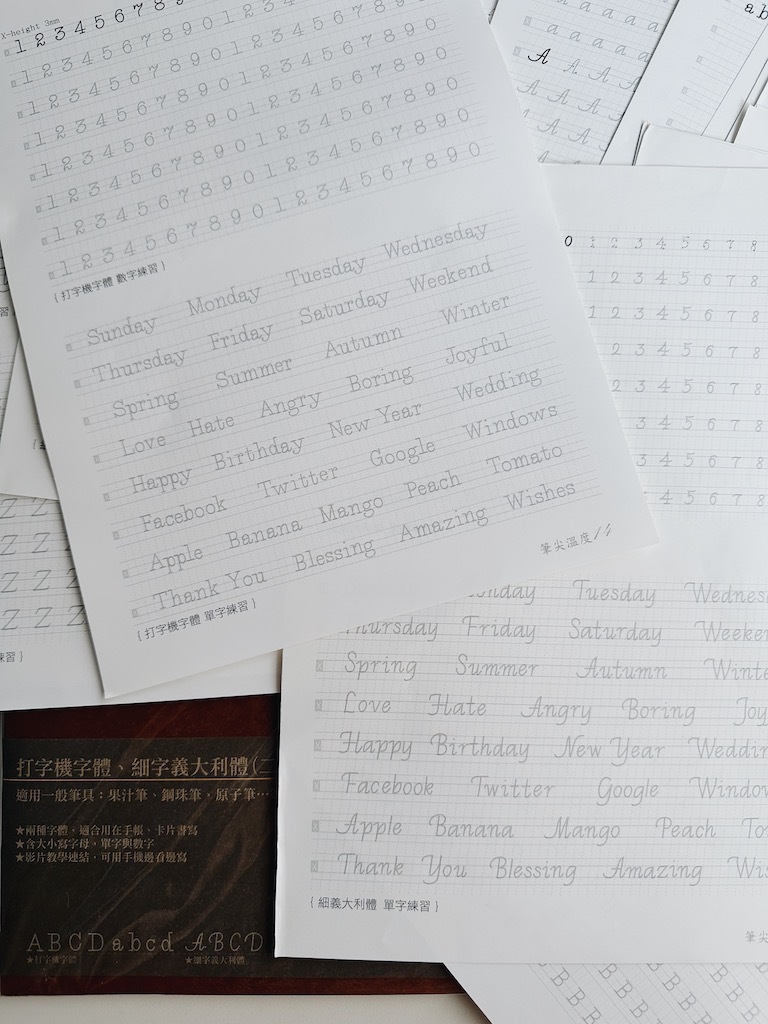 X-height 3mm
1 2 3 4 5 6 7 8 9 0 1 2 3 4 5 6 7 8 9 0
1 2 3 4 5 6 7 8 9 0 1 2 3 4 5 6 7 8 9 0
1 2 3 4 5 6 7 8 9 0 1 2 3 4 5 6 7 8 9 0
1 2 3 4 5 6 7 8 9 0 1 2 3 4 5 6 7 8 9 0
1 2 3 4 5 6 7 8 9 0 1 2 3 4 5 6 7 8 9 0
{ 打字機字體 數字練習 }
Sunday Monday Tuesday Wednesday
Thursday Friday Saturday Weekend
Spring Summer Autumn Winter
Love Hate Angry Boring Joyful
Happy Birthday New Year Wedding
Facebook Twitter Google Windows
Apple Banana Mango Peach Tomato
Thank You Blessing Amazing Wishes
{ 打字機字體 單字練習 }
筆尖溫度
a a a a a
a a a a a
A A A A
A A A
A A
ab
0 1 2 3 4 5 6 7 8
1 2 3 4 5 6 7 8
1 2 3 4 5 6 7 8
2 3 4 5 6 7 8
2 3 4 5 6 7 8
3 4 5 6 7 8
3 4 5 6 7 8
4 5 6 7 8
Z Z Z
Z Z Z
Z Z Z
Z Z Z
練習 }
Tuesday Wednes
Thursday Friday Saturday Weeke
Spring Summer Autumn Winte
Love Hate Angry Boring Joy
Happy Birthday New Year Weddin
Facebook Twitter Google Window
Apple Banana Mango Peach To
Thank You Blessing Amazing Wis
{ 細義大利體 單字練習 }
筆尖
打字機字體、細字義大利體(二
適用一般筆具：果汁筆、鋼珠筆，原子筆…
★兩種字體，適合用在手帳、卡片書寫
★含大小寫字母，單字與數字
★影片教學連結，可用手機邊看邊寫
A B C D a b c d A B C D
★打字機字體 ★細字義大利體
B B B B B
B B B B